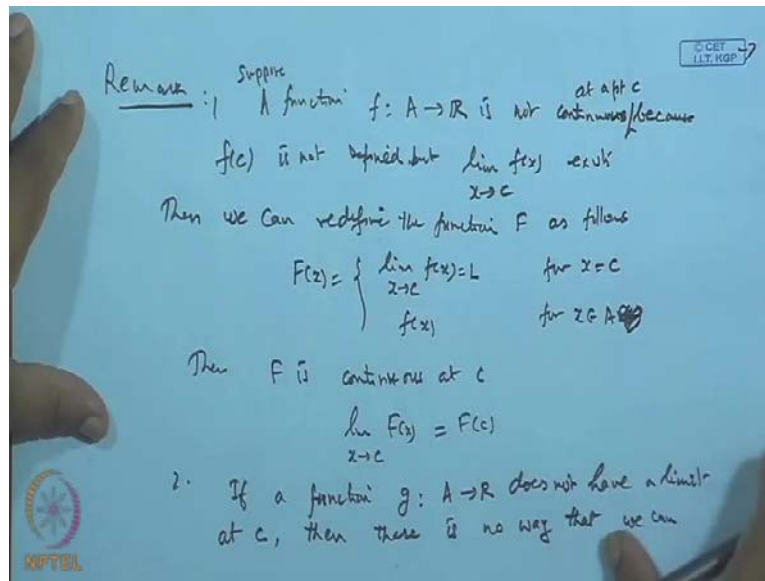 © CET
I.I.T. KGP
Remark :1 Suppose A function f: A → ℝ is not continuous at a pt c because
f(c) is not defined but lim f(x) exist
x→c
Then we can redefine the function F as follows
F(x) = { lim f(x) = L for x = c
x→c
f(x) for x ∈ A
Then F is continuous at c
lim F(x) = F(c)
x→c
2. If a function g: A → R does not have a limit
at c, then there is no way that we can
NPTEL